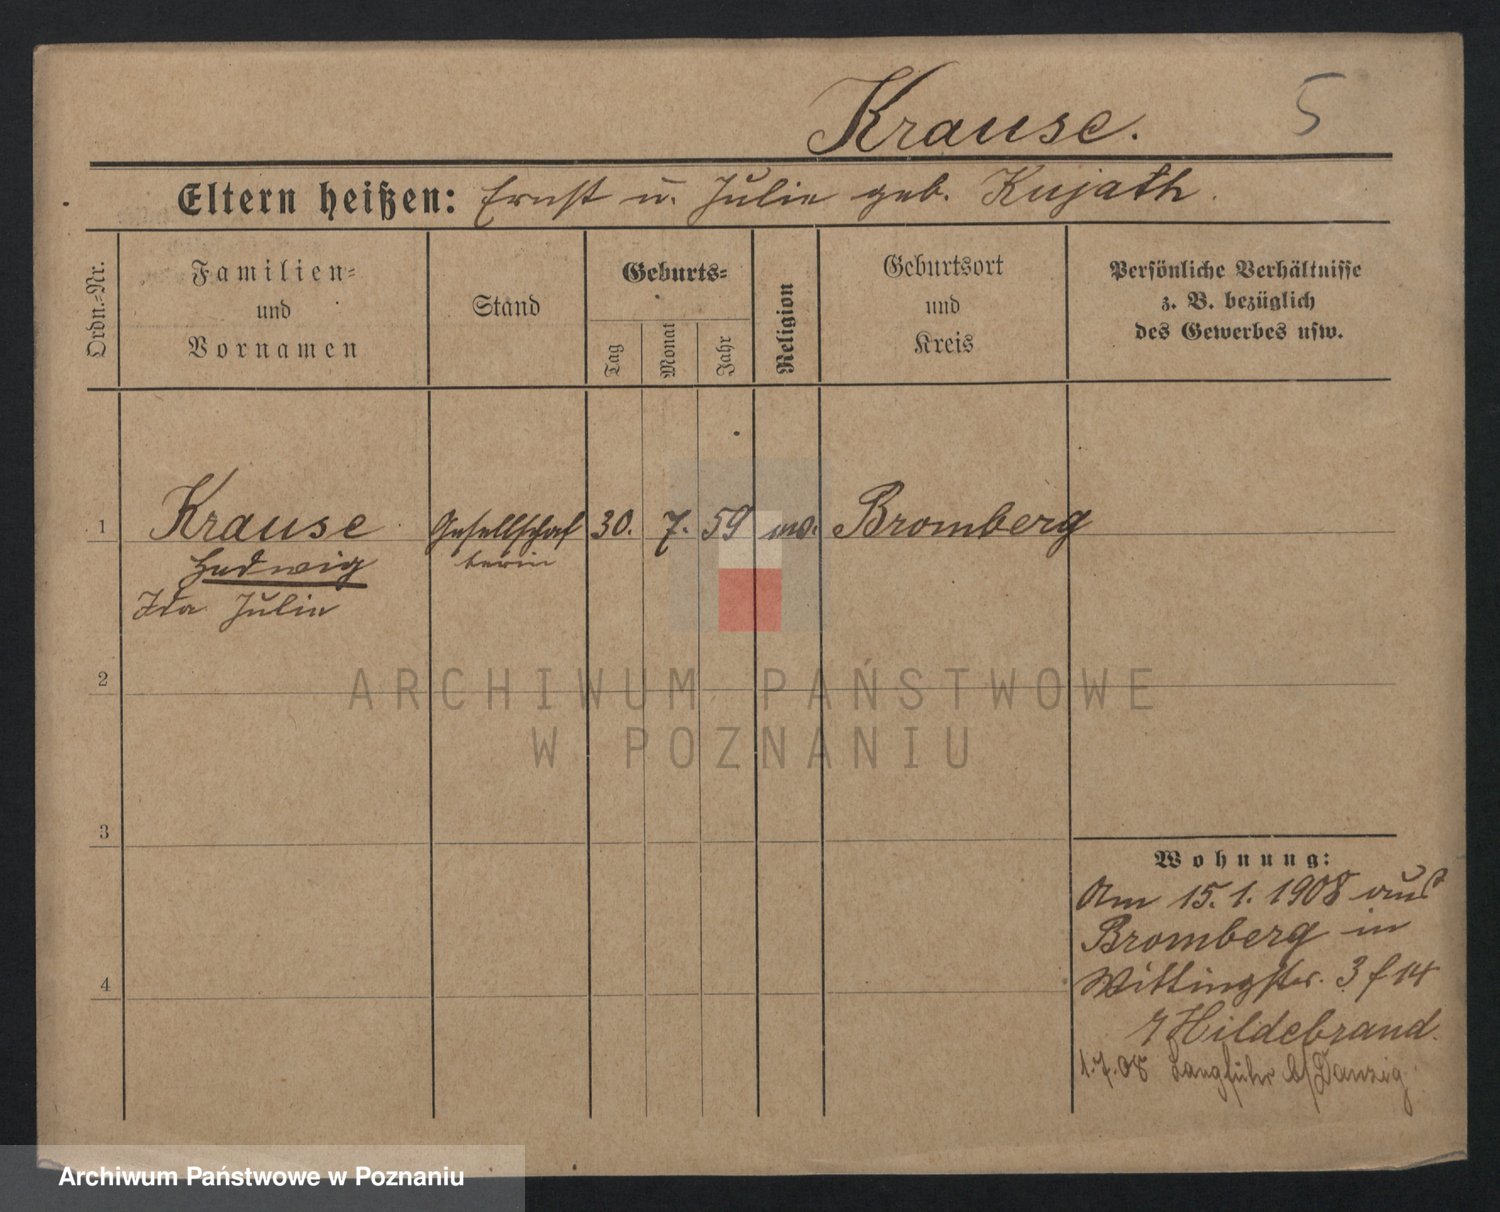 Krause. 5
Eltern heißen: Ernst u. Julie geb. Kujath.
Ordn.=Nr.
Familien=
und
Vornamen
Stand
Geburts=
Tag
Monat
Jahr
Religion
Geburtsort
und
Kreis
Persönliche Verhältnisse
z. B. bezüglich
des Gewerbes usw.
1 Krause Gesellschaf 30. 7. 59 Bromberg
Hedwig terin
Ida Julie
2
ARCHIWUM PAŃSTWOWE
W POZNANIU
3
Wohnung:
Am 15.1.1908 aus
Bromberg in
4
Wittingstr. 3 f 14
Hildebrand.
1.7.08 Langfuhr b/Danzig.
Archiwum Państwowe w Poznaniu